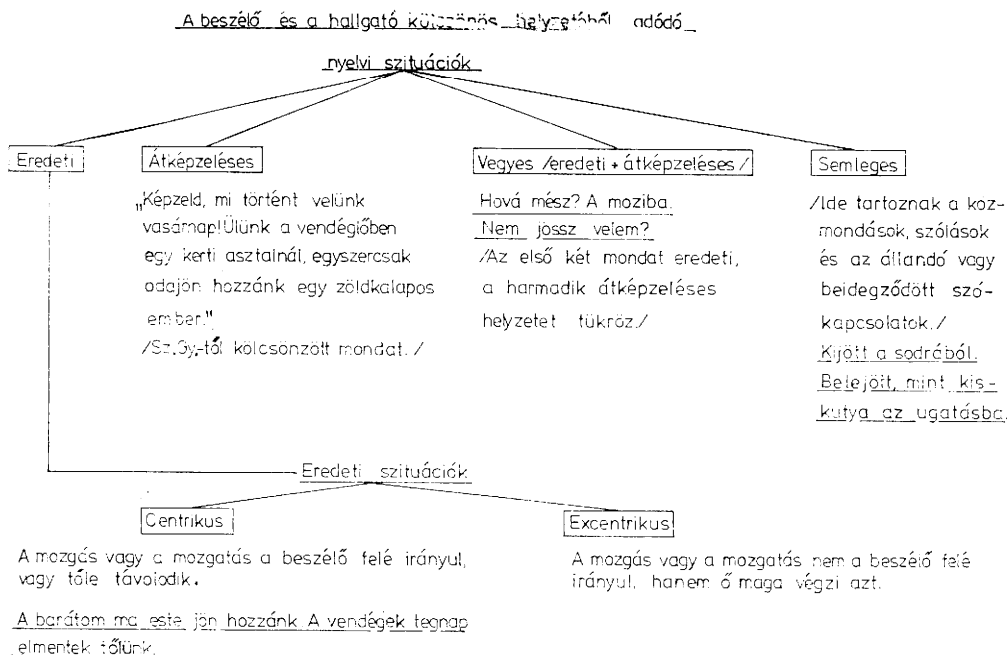 A beszélő és a hallgató kölcsönös helyzetéből adódó
nyelvi szituációk
Eredeti
Átképzeléses
Vegyes /eredeti + átképzeléses/
Semleges
„Képzeld, mi történt velünk
vasárnap! Ülünk a vendéglőben
egy kerti asztalnál, egyszercsak
odajön hozzánk egy zöldkalapos
ember."
/Sz.Gy.-től kölcsönzött mondat./
Hová mész? A moziba.
Nem jössz velem?
/Az első két mondat eredeti,
a harmadik átképzeléses
helyzetet tükröz./
/Ide tartoznak a köz-
mondások, szólások
és az állandó vagy
beidegződött szó-
kapcsolatok./
Kijött a sodrából.
Belejött, mint kis-
kutya az ugatásba.
Eredeti szituációk
Centrikus
Excentrikus
A mozgás vagy a mozgatás a beszélő felé irányul,
vagy tőle távolodik.
A barátom ma este jön hozzánk. A vendégek tegnap
elmentek tőlünk.
A mozgás vagy a mozgatás nem a beszélő felé
irányul, hanem ő maga végzi azt.